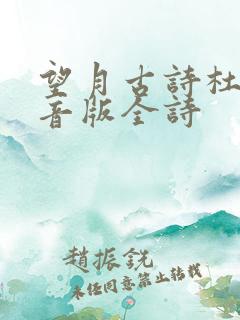 望月古詩杜
音版全詩
趙振銳
未经同意禁止转载